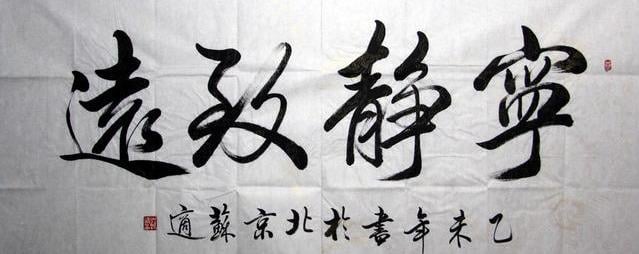 寧靜致遠
乙未年書於北京蘇適